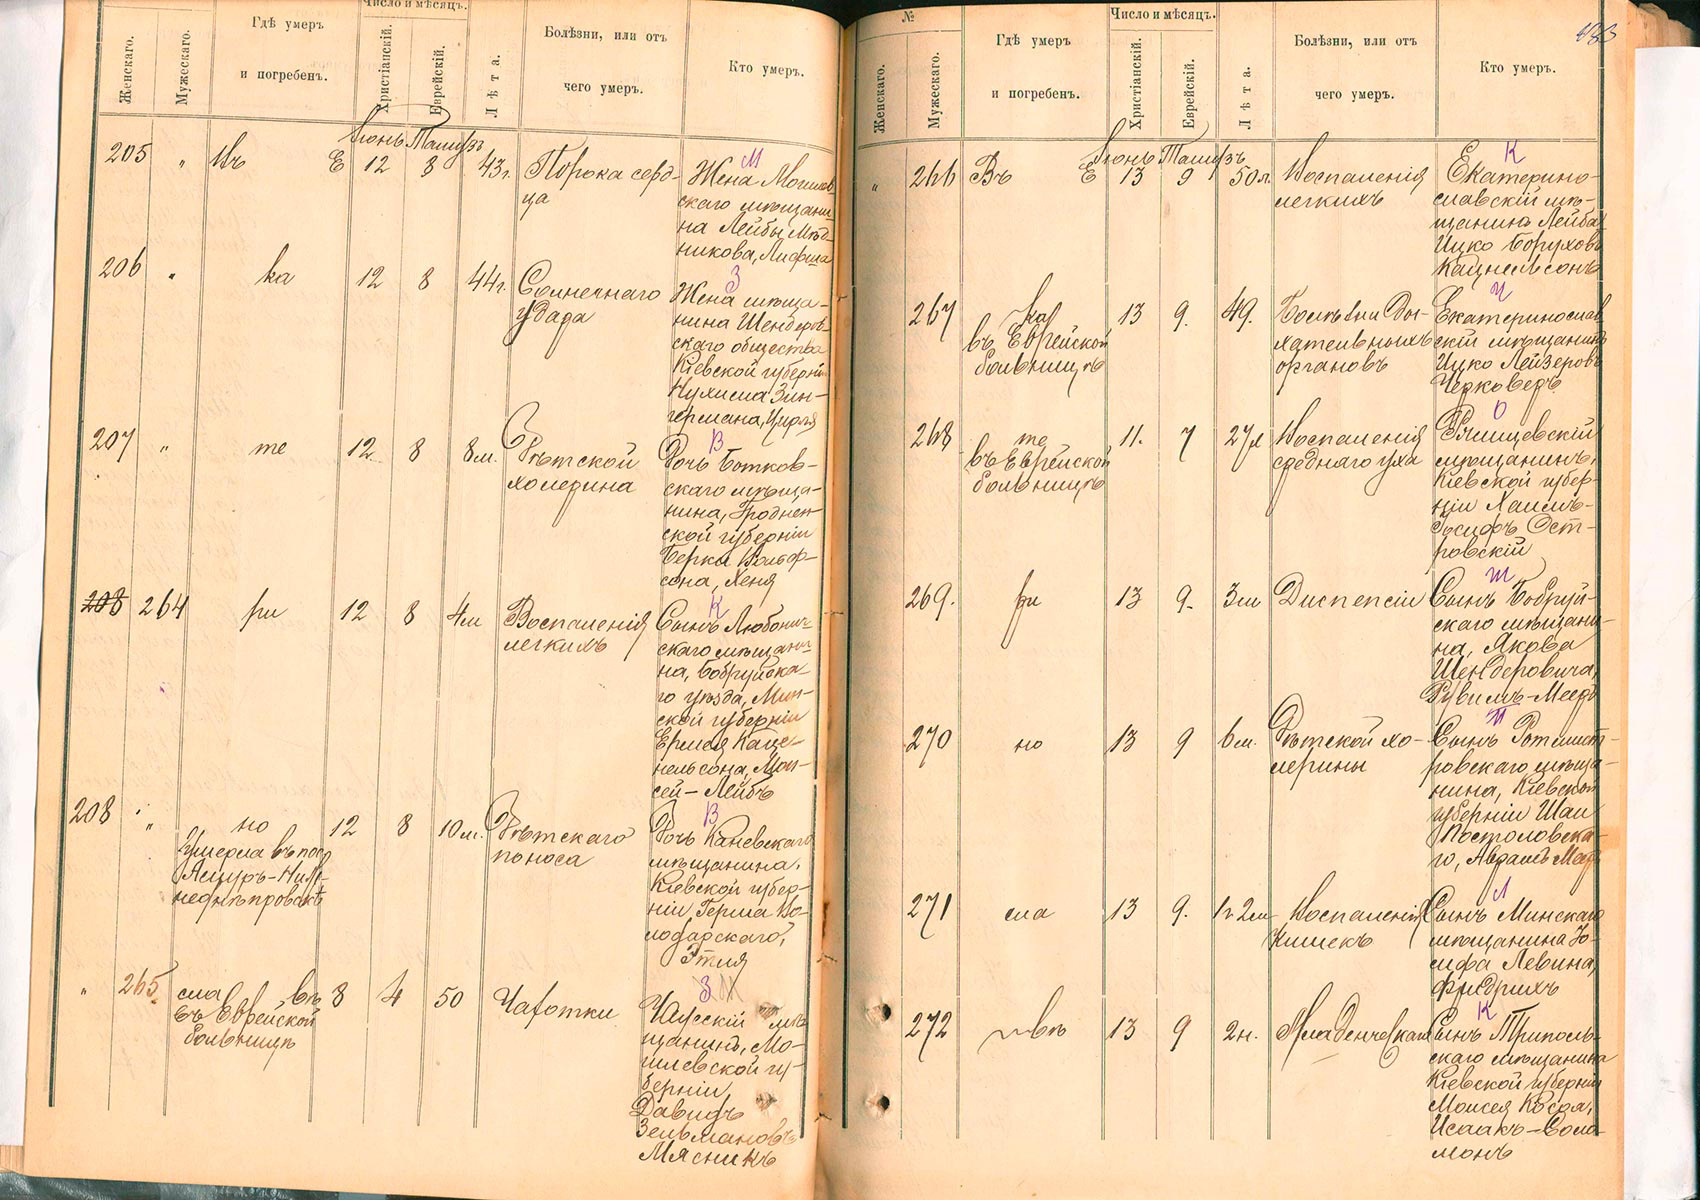 Женскаго.
Мужескаго.
Гдѣ умеръ
и погребенъ.
Число и мѣсяцъ.
Христіанскій.
Еврейскій.
Лѣта.
Болѣзни, или отъ
чего умеръ.
Кто умеръ.
Іюнь Тамузъ
205 " Въ Е 12 8 43г. Порока серд-
ца
М
Жена Могилев
скаго мѣщани-
на Лейбы Мѣд-
никова, Лифша
206 " ка 12 8 44г. Солнечнаго
удара
З
Жена мѣща-
нина Шендеров-
скаго общества
Кіевской губерніи
Нухима Зин-
германа, Цирля
207 " те 12 8 8м. Дѣтской
холерина
В
Дочь Ботков-
скаго мѣща-
нина, Гроднен-
ской губерніи
Берки Вольф-
сона, Хеня
208 264 ри 12 8 4м Воспаленія
легкихъ
К
Сынъ Любонич-
скаго мѣщани-
на, Бобруйска-
го уѣзда, Мин-
ской губерніи
Ермея Каце-
нельсона, Мои-
сей-Лейбъ
208 " но 12 8 10м. Дѣтскаго
поноса
Умерла въ пос.
Амуръ-Ниж-
неднѣпровскѣ
В
Дочь Каневскаго
мѣщанина,
Кіевской губер-
ніи, Герша Во-
лодарскаго,
Этля
" 265. сла въ 8 4 50 Чахотки
Еъ Еврейской
больницѣ
З
Чаусскій мѣ
щанинъ, Мо-
гилевской гу-
берніи,
Давидъ
Зельмановъ
Мясникъ
183
№
Женскаго.
Мужескаго.
Гдѣ умеръ
и погребенъ.
Число и мѣсяцъ.
Христіанскій.
Еврейскій.
Лѣта.
Болѣзни, или отъ
чего умеръ.
Кто умеръ.
Іюнь Тамузъ
" 266 Въ Е 13 9 50л. Воспаленія
легкихъ
К
Екатерино-
славскій мѣ-
щанинъ Лейба-
Ицко Боруховъ
Кацнельсонъ
267 ка 13 9. 49. Болѣзни Ды-
въ Еврейской
больницѣ
хательныхъ
органовъ
Ч
Екатеринослав
скій мѣщанинъ
Ицко Лейзеровъ
Черковеръ
268 те 11. 7 27л Воспаленія
въ Еврейской
больницѣ
средняго уха
О
Ржищевскій
мѣщанинъ,
Кіевской губер-
ніи Хаимъ-
Іосифъ Ост-
ровскій
269. ри 13 9. 3м Диспепсіи
Ш
Сынъ Бобруй-
скаго мѣщани-
на, Якова
Шендеровича,
Рувимъ-Меер
270 но 13 9 6м. Дѣтской хо-
лерины
П
Сынъ Ротмист-
ровскаго мѣща-
нина, Кіевской
губерніи Шаи
Постоловска-
го, Авраамъ Меер
271 сла 13 9. 1г 2м Воспаленія
кишекъ
Л
Сынъ Минскаго
мѣщанина Іо-
сифа Левина,
Фридрихъ
272 въ 13 9 2н. Младенческая
К
Сынъ Триполь-
скаго мѣщанина
Кіевской губерніи
Моисея Когоя,
Исаакъ-Соло-
монъ